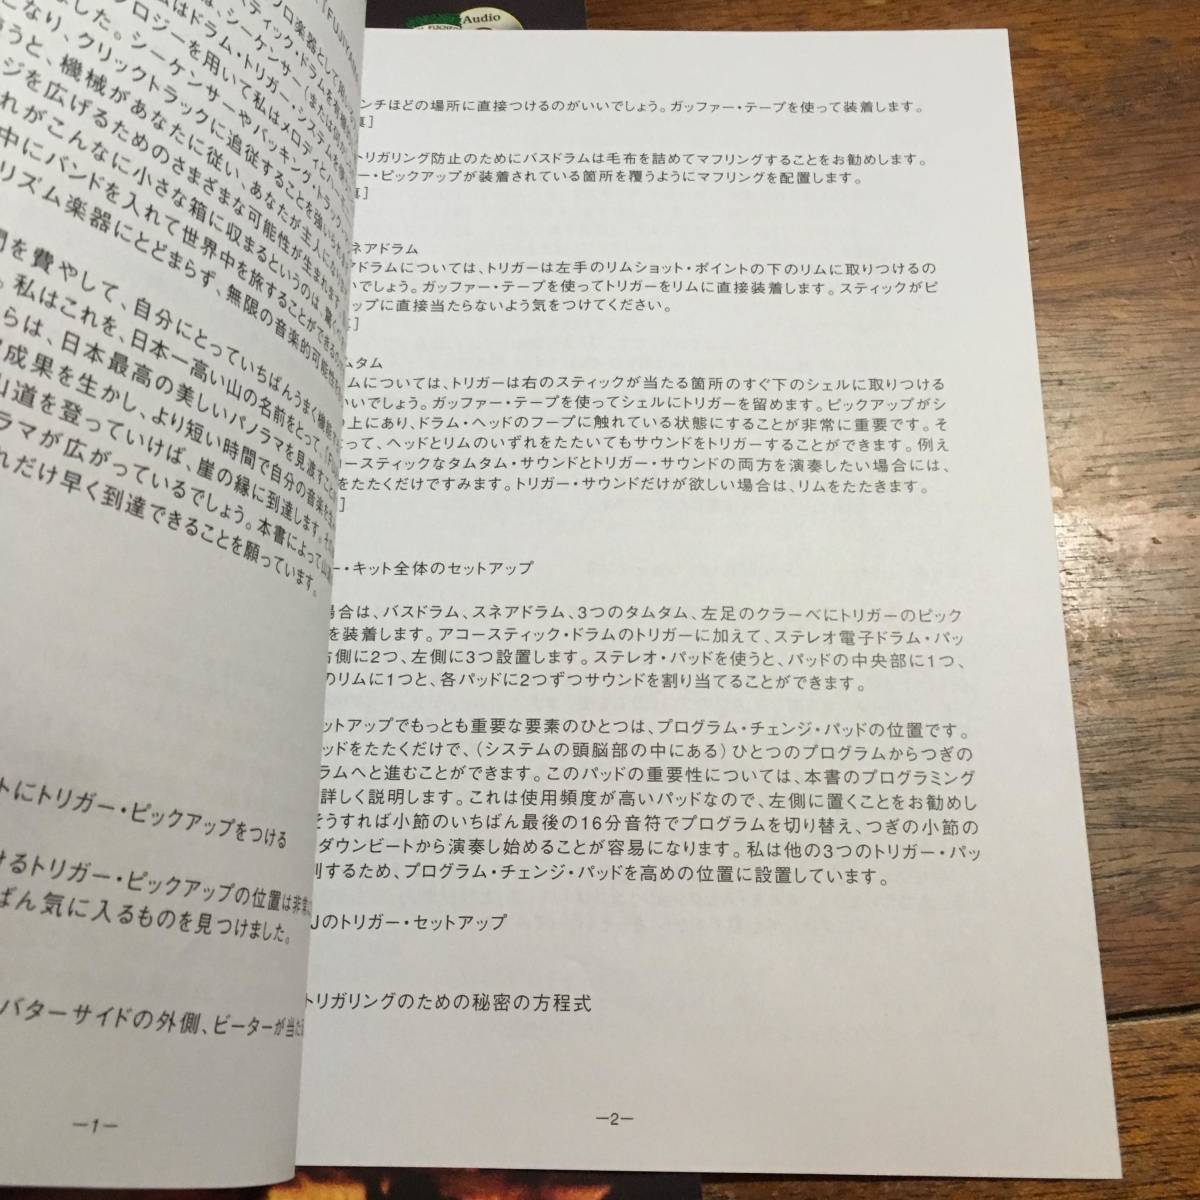 Audio
ンチほどの場所に直接つけるのがいいでしょう。ガッファー・テープを使って装着します。
]
トリガリング防止のためにバスドラムは毛布を詰めてマフリングすることをお勧めします。
ー・ピックアップが装着されている箇所を覆うようにマフリングを配置します。
]
ネアドラム
アドラムについては、トリガーは左手のリムショット・ポイントの下のリムに取りつけるの
いでしょう。ガッファー・テープを使ってトリガーをリムに直接装着します。スティックがピ
ップに直接当たらないよう気をつけてください。
]
ムタム
ムについては、トリガーは右のスティックが当たる箇所のすぐ下のシェルに取りつける
いいでしょう。ガッファー・テープを使ってシェルにトリガーを留めます。ピックアップがシ
上にあり、ドラム・ヘッドのフープに触れている状態にすることが非常に重要です。そ
って、ヘッドとリムのいずれをたたいてもサウンドをトリガーすることができます。例え
コースティックなタムタム・サウンドとトリガー・サウンドの両方を演奏したい場合には、
をたたくだけですみます。トリガー・サウンドだけが欲しい場合は、リムをたたきます。
]
ー・キット全体のセットアップ
場合は、バスドラム、スネアドラム、3つのタムタム、左足のクラーベにトリガーのピック
を装着します。アコースティック・ドラムのトリガーに加えて、ステレオ電子ドラム・パッ
右側に2つ、左側に3つ設置します。ステレオ・パッドを使うと、パッドの中央部に1つ、
のリムに1つと、各パッドに2つずつサウンドを割り当てることができます。
ットアップでもっとも重要な要素のひとつは、プログラム・チェンジ・パッドの位置です。
ッドをたたくだけで、(システムの頭脳部の中にある)ひとつのプログラムからつぎの
ラムへと進むことができます。このパッドの重要性については、本書のプログラミング
詳しく説明します。これは使用頻度が高いパッドなので、左側に置くことをお勧めし
そうすれば小節のいちばん最後の16分音符でプログラムを切り替え、つぎの小節の
ダウンビートから演奏し始めることが容易になります。私は他の3つのトリガー・パッ
別するため、プログラム・チェンジ・パッドを高めの位置に設置しています。
Jのトリガー・セットアップ
トリガリングのための秘密の方程式
—2—
プロ楽器として用い
スティック・ドラムを有機的
は、シーケンサー(または
ムはドラム・トリガー・システムを
ロジーを用いて私はメロディとハー
ました。シーケンサーやバッキング・トラック
なり、クリックトラックに追従することを強いられ
うと、機械があなたに従い、あなたが主人にな
ジを広げるためのさまざまな可能性が生まれます
れがこんなに小さな箱に収まるというのは、驚く
中にバンドを入れて世界中を旅することができるの
リズム楽器にとどまらず、無限の音楽的可能性
間を費やして、自分にとっていちばんうまく機能
。私はこれを、日本一高い山の名前をとって、「
らは、日本最高の美しいパノラマを見渡すこと
成果を生かし、より短い時間で自分の音楽を
山道を登っていけば、崖の縁に到達します。その
ラマが広がっているでしょう。本書によって山
れだけ早く到達できることを願っています。
トにトリガー・ピックアップをつける
けるトリガー・ピックアップの位置は非常
ばん気に入るものを見つけました。
バターサイドの外側、ビーターが当た
—1—